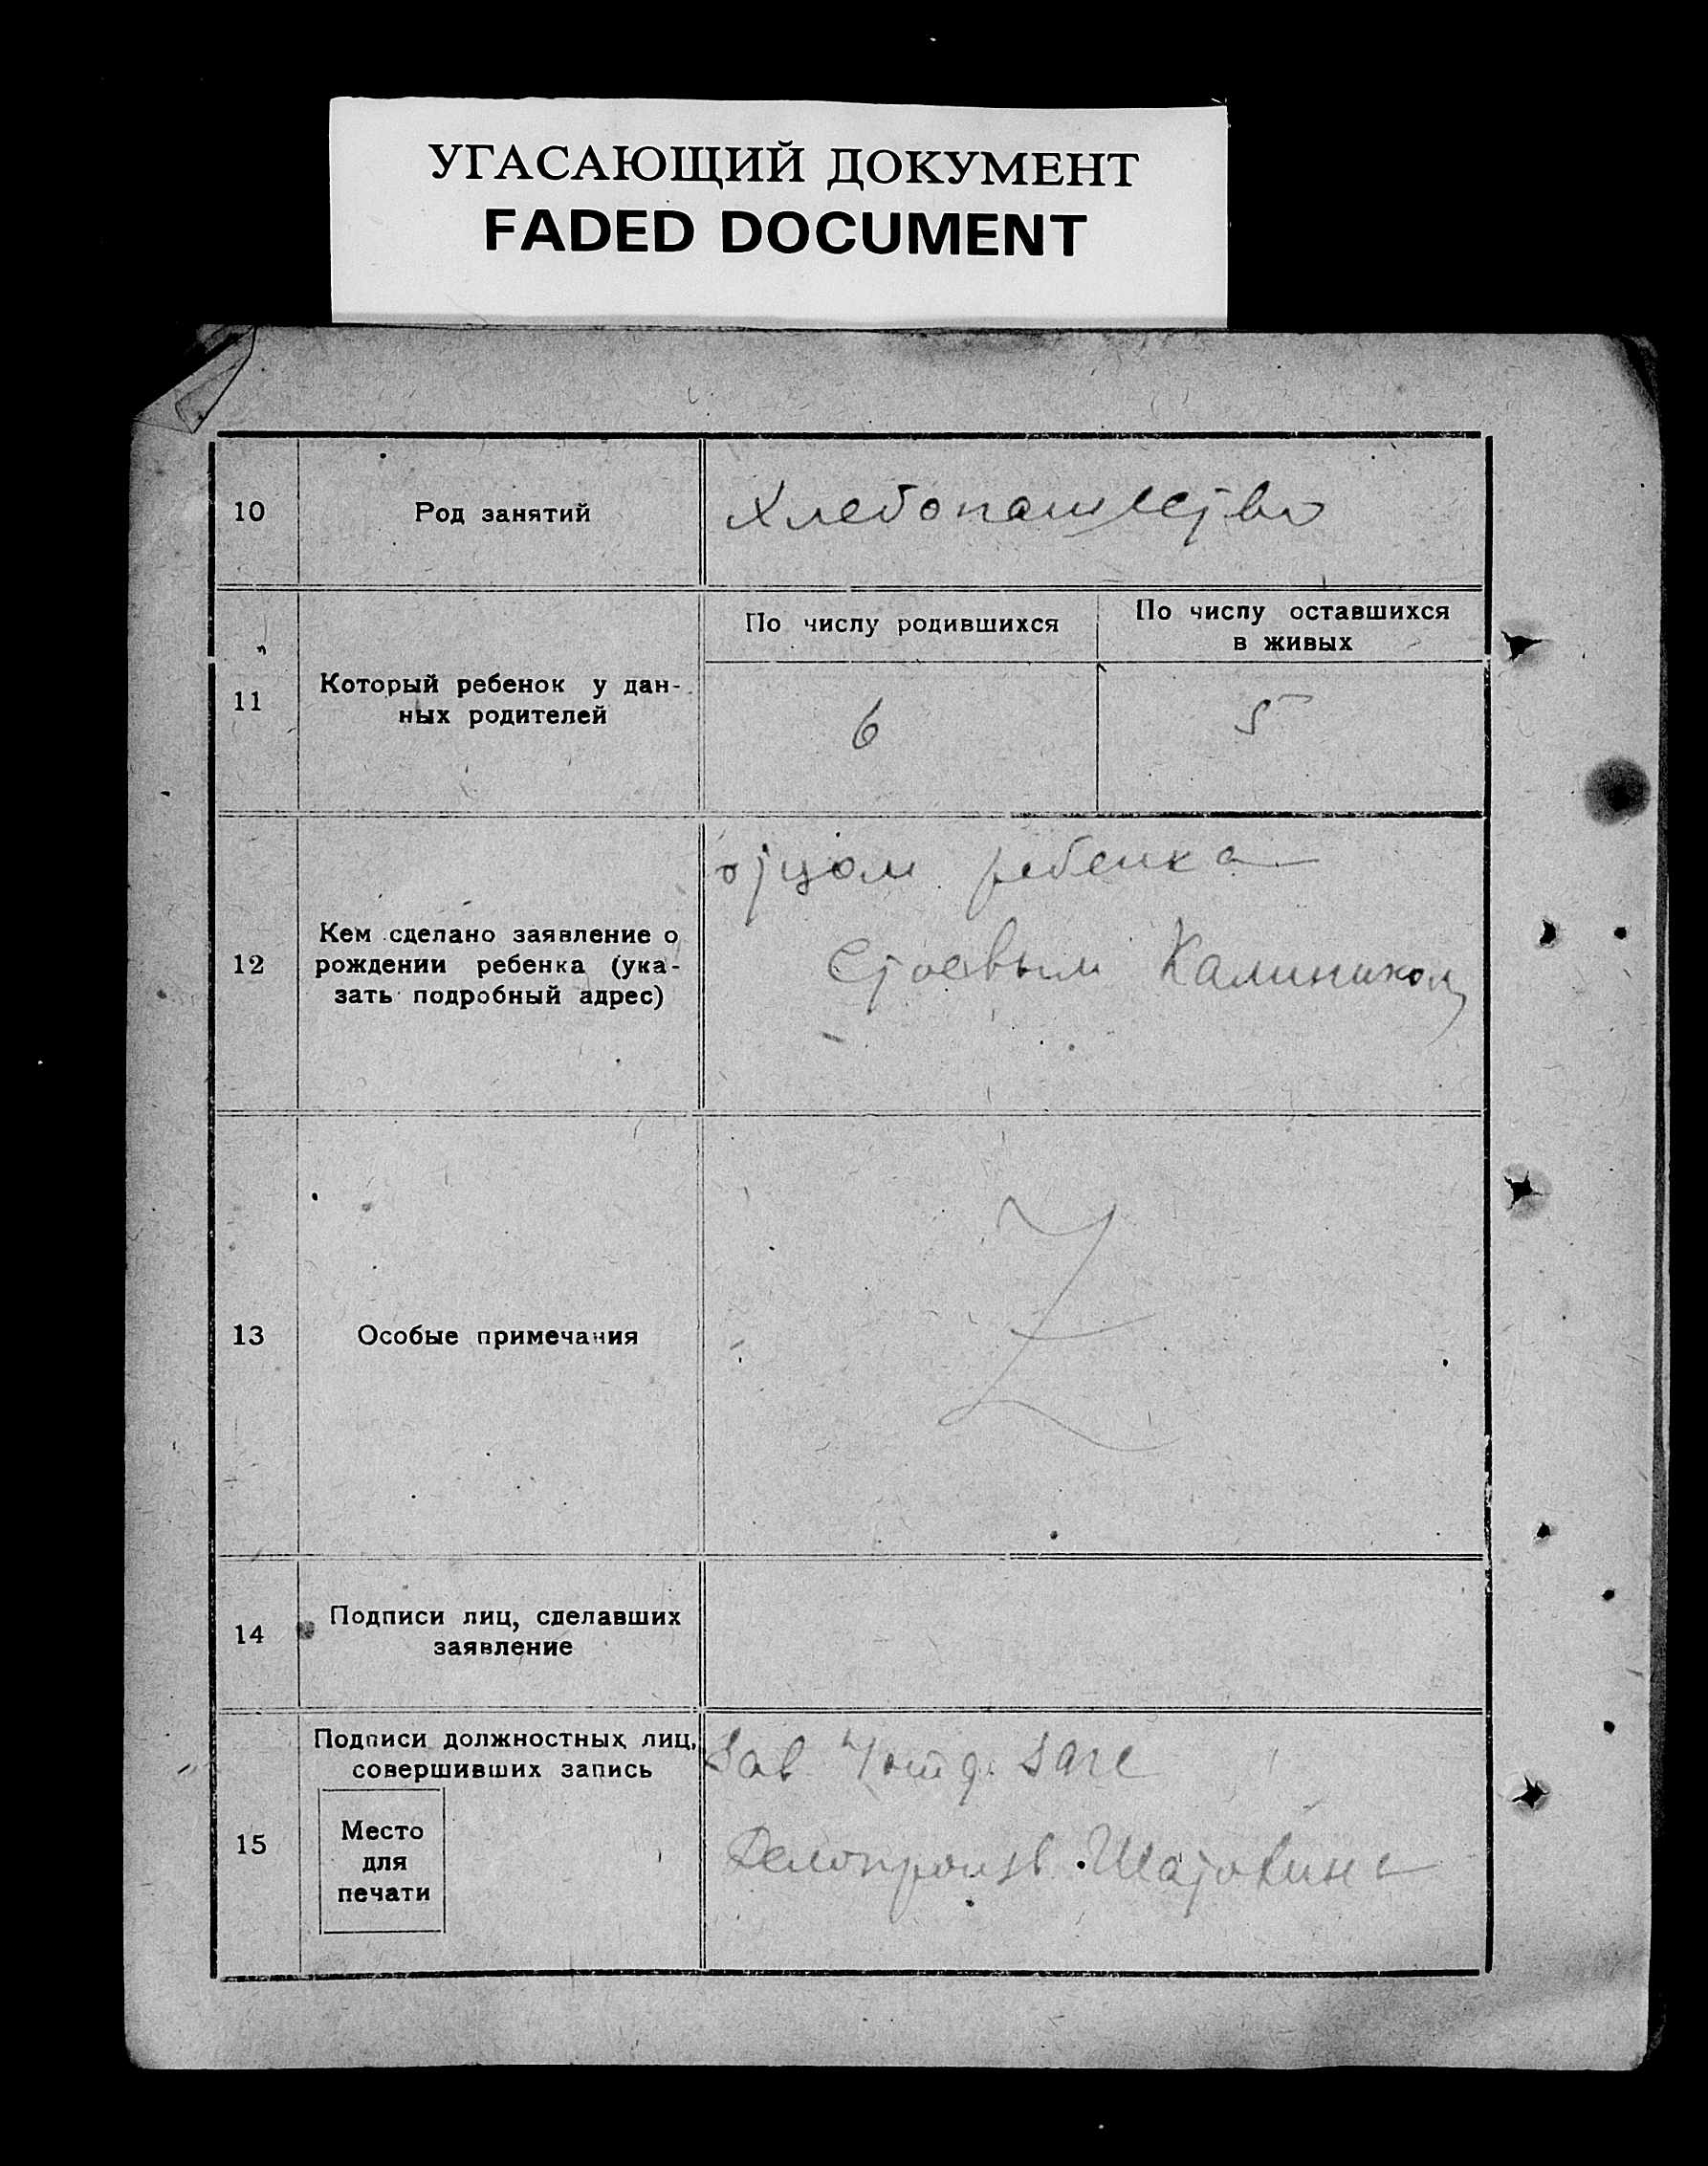 УГАСАЮЩИЙ ДОКУМЕНТ
FADED DOCUMENT
10
Род занятий
Хлебопашество
11
Который ребенок у дан-
ных родителей
По числу родившихся
6
По числу оставшихся
в живых
5
12
Кем сделано заявление о
рождении ребенка (ука-
зать подробный адрес)
отцом ребенка
Калиником
13
Особые примечания
Z
14
Подписи лиц, сделавших
заявление
15
Подписи должностных лиц,
совершивших запись
Место
для
печати
Зав
Делопроизв